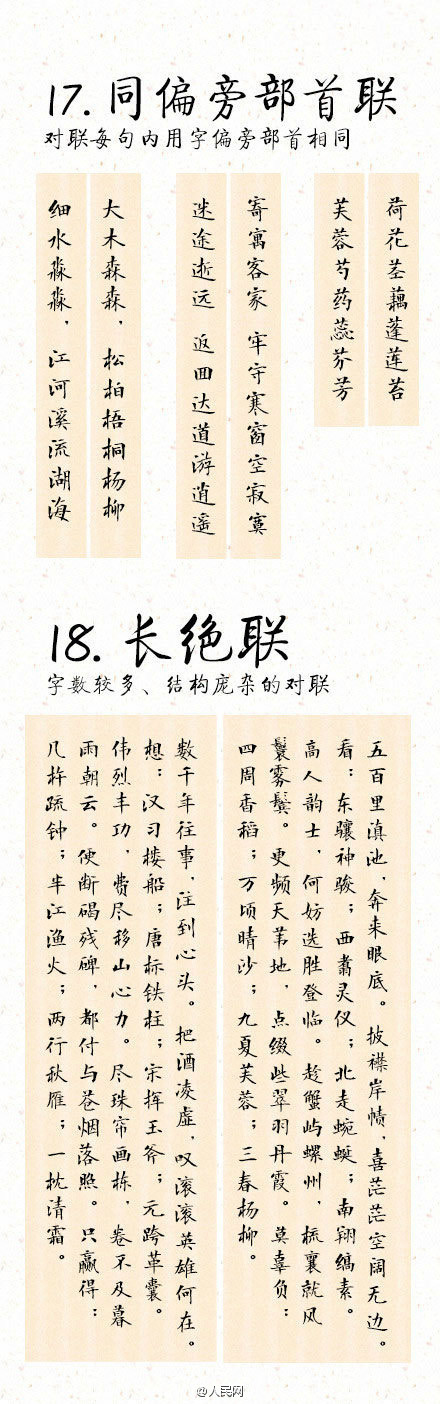 17.同偏旁部首联
对联每句内用字偏旁部首相同
荷花茎藕蓬莲苔
芙蓉芍药蕊芬芳
寄寓客家 牢守寒窗空寂寞
迷途逝远 返回达道游逍遥
大木森森，松柏梧桐杨柳
细水淼淼，江河溪流湖海
18.长绝联
字数较多、结构庞杂的对联
五百里滇池，奔来眼底。披襟岸帻，喜茫茫空阔无边。
看：东骧神骏；西翥灵仪；北走蜿蜒；南翔缟素。
高人韵士，何妨选胜登临。趁蟹屿螺州，梳裹就风
鬟雾鬓。更频天苇地，点缀些翠羽丹霞。莫辜负：
四周香稻；万顷晴沙；九夏芙蓉；三春杨柳。
数千年往事，注到心头。把酒凌虚，叹滚滚英雄何在。
想：汉习楼船；唐标铁柱；宋挥玉斧；元跨革囊。
伟烈丰功，费尽移山心力。尽珠帘画栋，卷不及暮
雨朝云。便断碣残碑，都付与苍烟落照。只赢得：
几杵疏钟；半江渔火；两行秋雁；一枕清霜。
@人民网